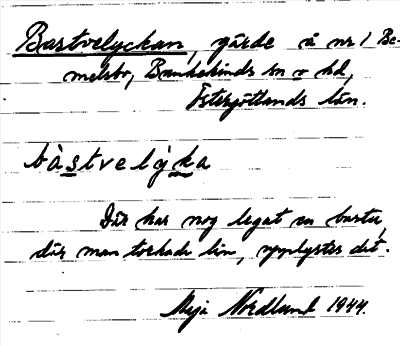 Bastvelyckan, gärde å nr 1 Be-
melsbo, Bankekinds sn o hd,
Östergötlands län.
bàstvelỳka
Där har nog legat en bastu,
där man torkade lin, upplystes det.
Maja Nordlund 1944.